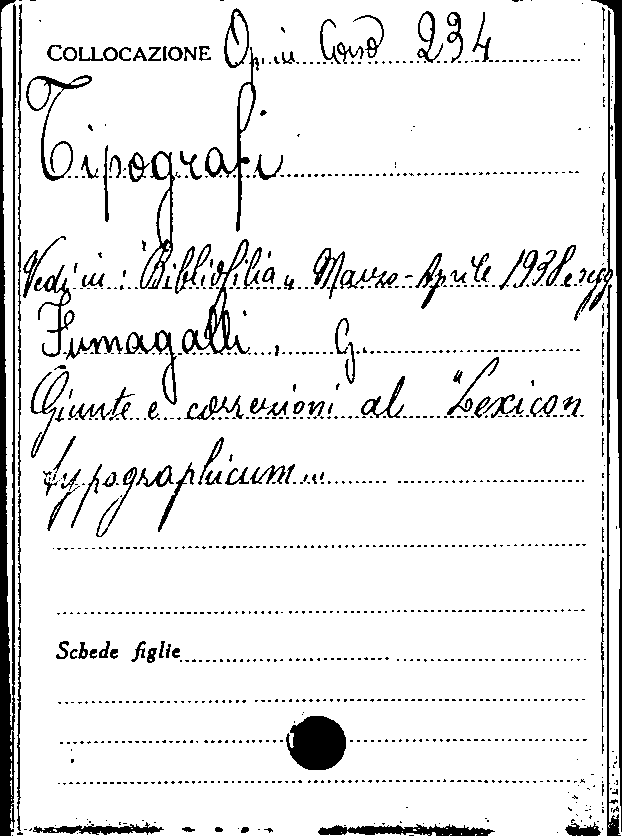 COLLOCAZIONE Op. in Corso 234
Tipografi
Vedi in: "Bibliofilia" Marzo-Aprile 1938 e segg
Fumagalli, G.
Giunte e correzioni al "Lexicon
typographicum...
Schede figlie